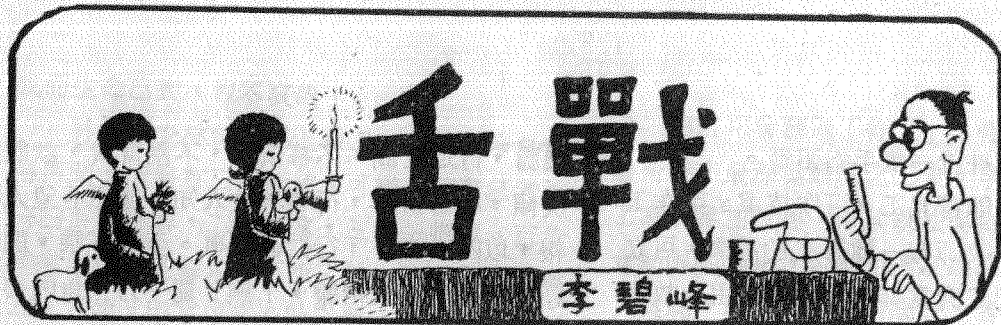 舌戰
李碧峰